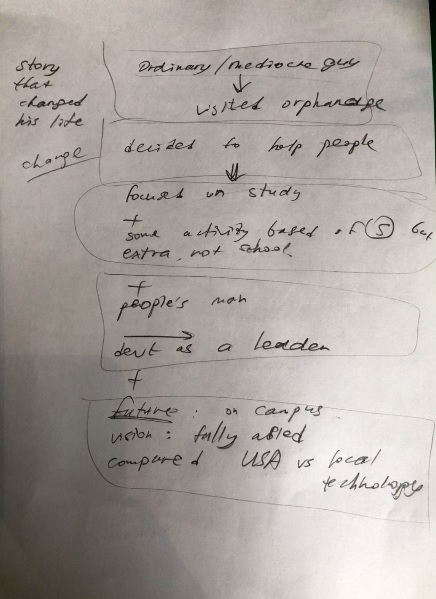 story
that
changed
his life
change
Ordinary / mediocre guy
visited orphanage
decided to help people
focused on study
+
some activity based of (S) but
extra, not school.
+
people's man
as a leader
+
future : on campus
vision : fully abled
compared USA vs local
technology